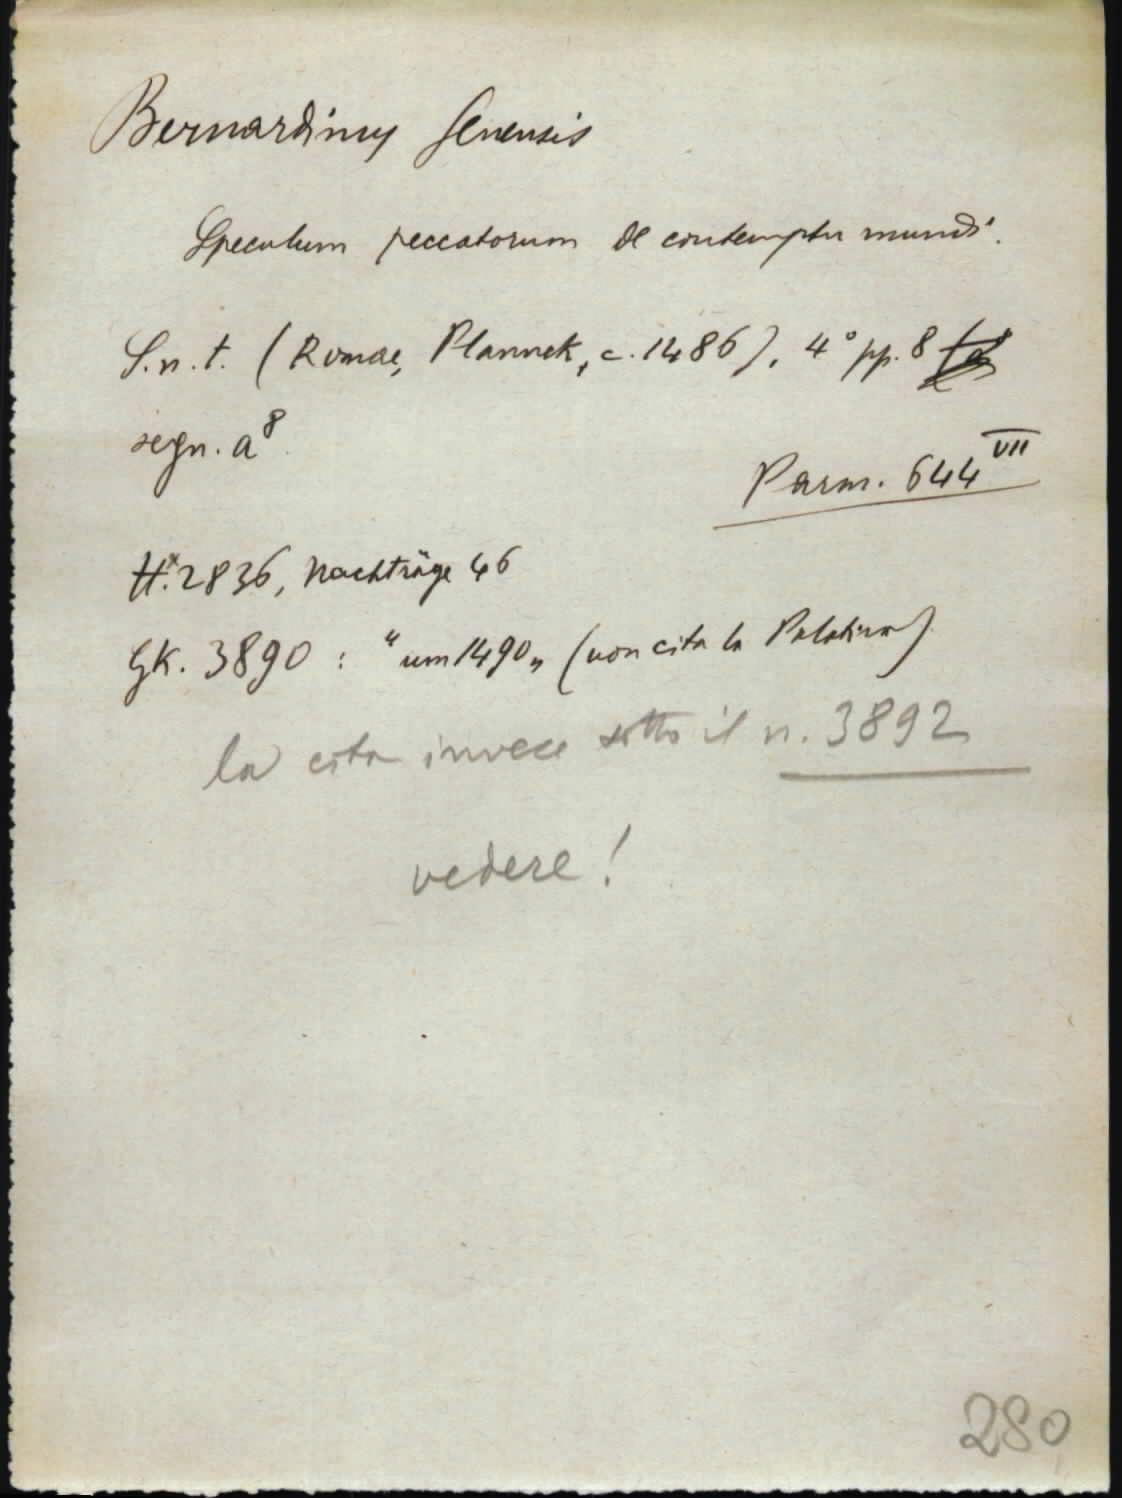 Bernardinus Senensis
Speculum peccatorum de contemptu mundi.
S. n. t. (Romae, Plannck, c. 1486), 4° pp. 8
segn. a⁸.
Parm. 644 VII
H.* 2836, Nachträge 46
GK. 3890 : "um 1490„ (non cita la Palatina)
la cita invece sotto il n. 3892
vedere!
280